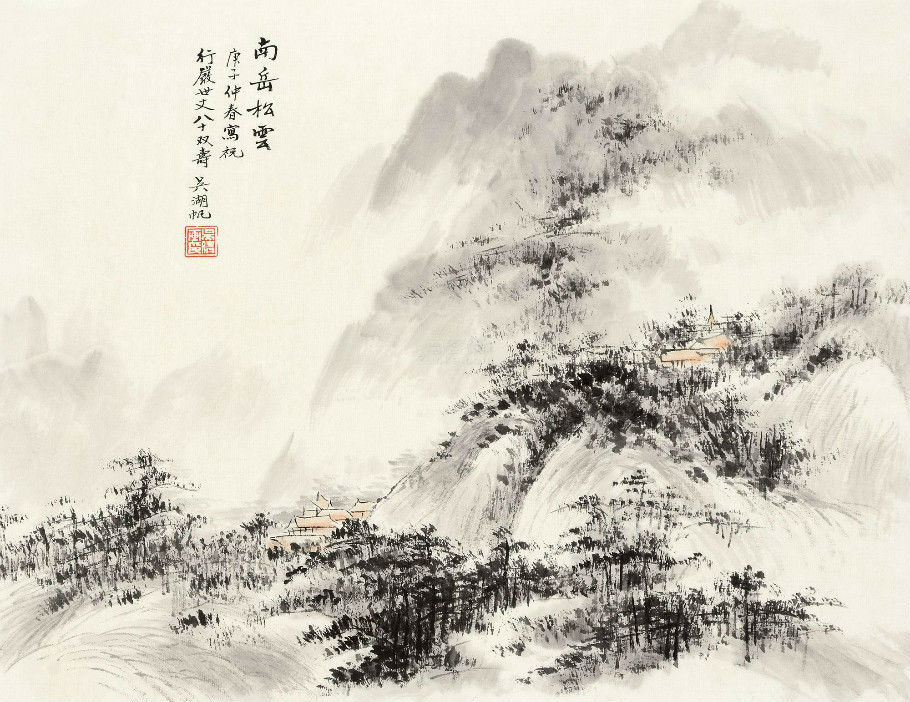 南岳松雲
庚子仲春寫祝
行嚴世丈八十双壽 吴湖帆